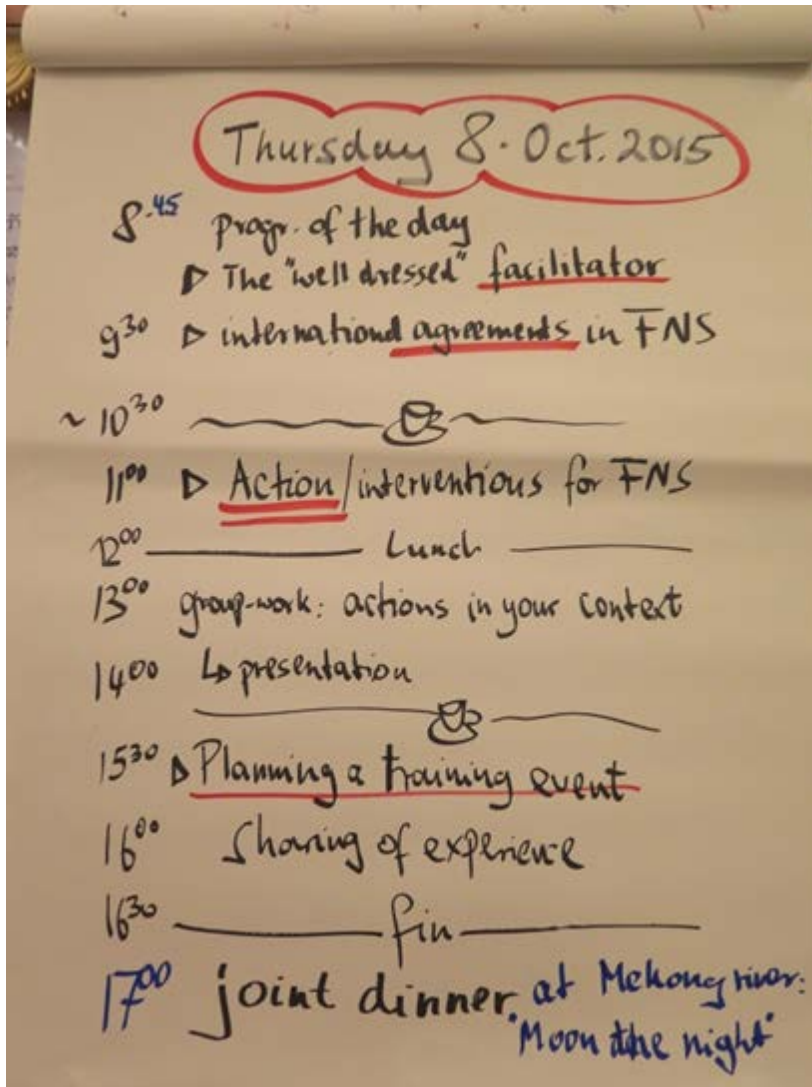 Thursday 8. Oct. 2015
8.45 progr. of the day
The "well dressed" facilitator
9 30 international agreements in FNS
~ 10 30
11 00 Action / interventions for FNS
12 00 Lunch
13 00 group-work: actions in your context
14 00 presentation
15 30 Planning a training event
16 00 Sharing of experience
16 30 fin
17 00 joint dinner at Mekong river:
"Moon the night"